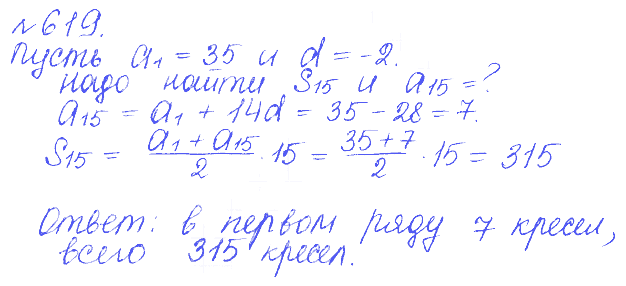 №619.
Пусть a₁ = 35 и d = -2.
надо найти S₁₅ и a₁₅ = ?
a₁₅ = a₁ + 14d = 35 - 28 = 7.
S₁₅ = (a₁ + a₁₅)/2 · 15 = (35 + 7)/2 · 15 = 315
Ответ: в первом ряду 7 кресел,
всего 315 кресел.